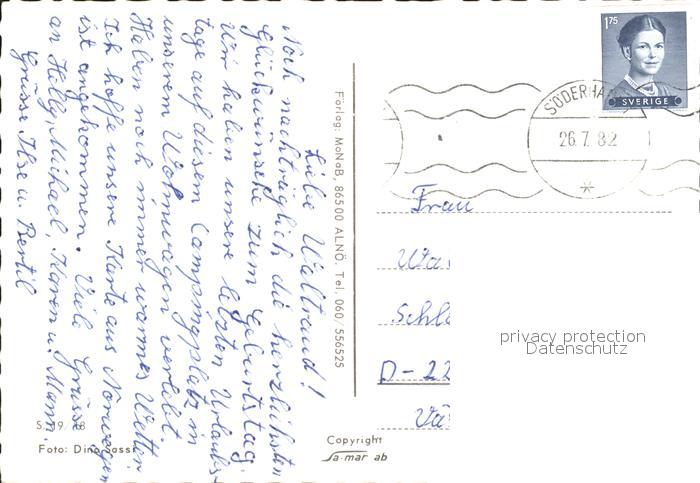 Liebe Waltraud!
Noch nachträglich die herzlichsten
Glückwünsche zum Geburtstag.
Wir haben unsere letzten Urlaubs-
tage auf diesem Campingplatz in
unserem Wohnwagen verlebt.
Haben noch immer warmes Wetter.
Ich hoffe unsere Karte aus Norwegen
ist angekommen. Viele Grüsse
an Hilly, Michael, Karen u. Mann.
Grüsse Ilse u. Bertil
Foto: Dino Sassi
Förlag: MoNaB, 865 00 ALNÖ. Tel. 060/556525
Copyright
Sa-mar ab
1.75
SVERIGE
SÖDERHA
26.7.82
Frau
D-22
privacy protection
Datenschutz